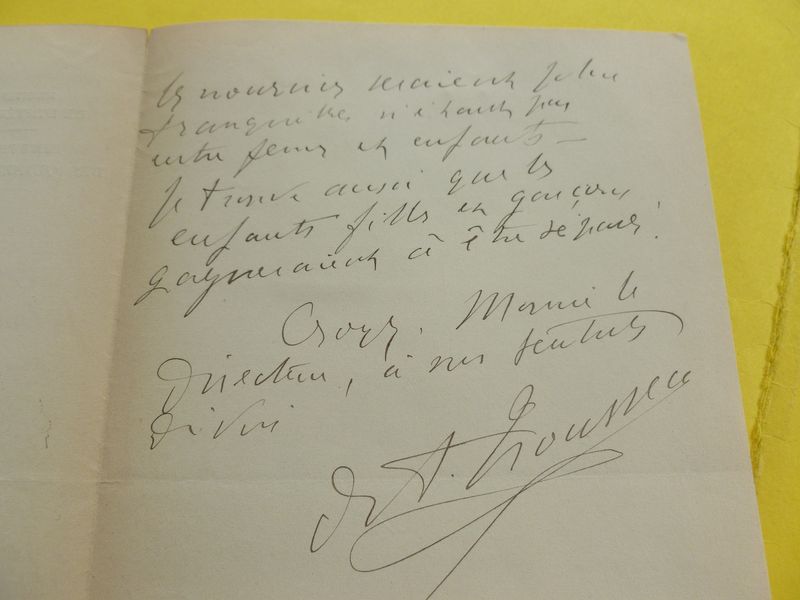 les nourrices seraient plus
tranquilles n'étant pas
entre femmes et enfants —
Je trouve aussi que les
enfants filles et garçons
gagneraient à être séparés.
Croyez, Monsieur le
Directeur, à mes sentiments
dévoués
Dr A. Trousseau